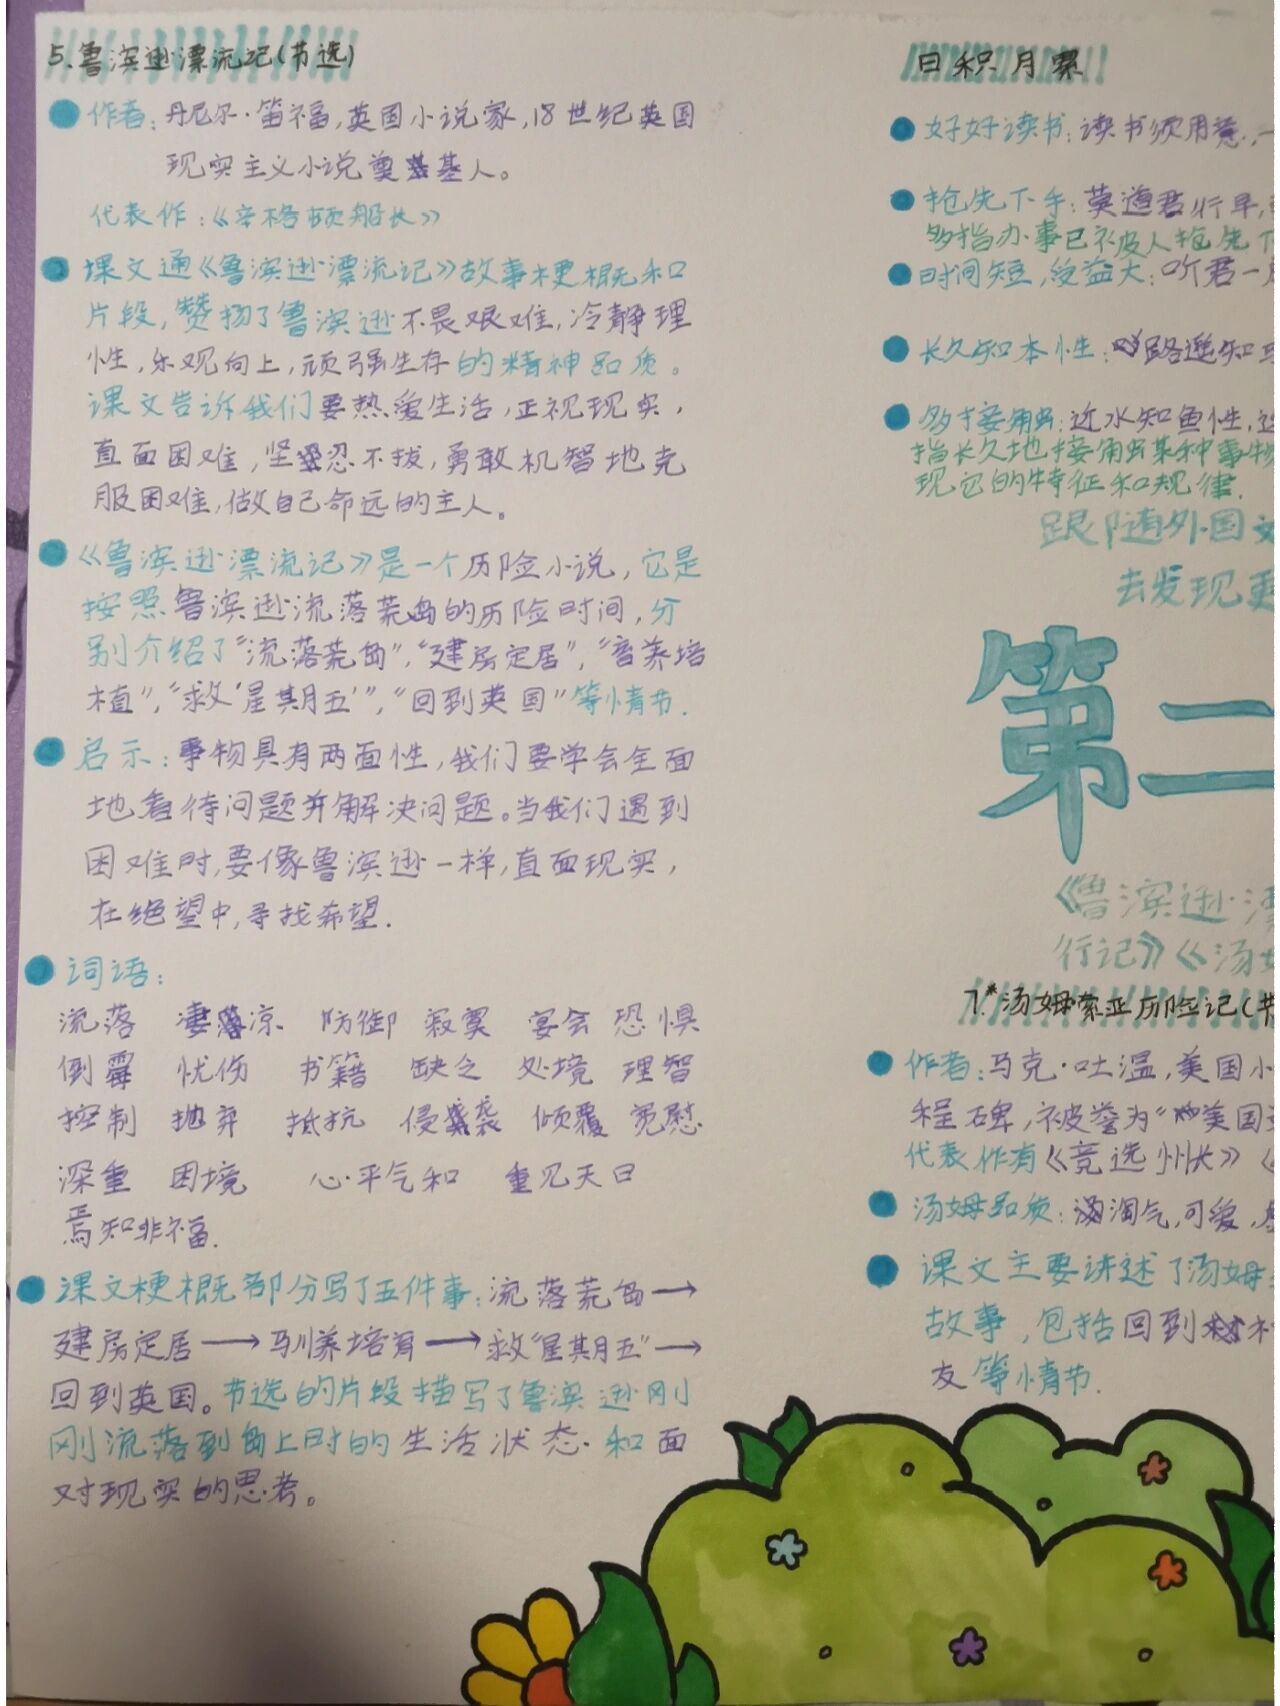 5.鲁滨逊漂流记(节选)
作者：丹尼尔·笛福,英国小说家,18世纪英国
现实主义小说奠基人。
代表作：《辛格顿船长》
课文通《鲁滨逊漂流记》故事梗概和
片段,赞扬了鲁滨逊不畏艰难,冷静理
性,乐观向上,顽强生存的精神品质。
课文告诉我们要热爱生活,正视现实,
直面困难,坚忍不拔,勇敢机智地克
服困难,做自己命远的主人。
《鲁滨逊漂流记》是一个历险小说,它是
按照鲁滨逊流落荒岛的历险时间,分
别介绍了“流落荒岛”,“建房定居”,“畜养培
植”,“救‘星期五’”,“回到英国”等情节.
启示：事物具有两面性,我们要学会全面
地看待问题并解决问题。当我们遇到
困难时,要像鲁滨逊一样,直面现实,
在绝望中,寻找希望.
词语：
流落 凄凉 防御 寂寞 宴会 恐惧
倒霉 忧伤 书籍 缺乏 处境 理智
控制 抛弃 抵抗 侵袭 倾覆 宽慰
深重 困境 心平气和 重见天日
焉知非福.
课文梗概部分写了五件事：流落荒岛→
建房定居→驯养培育→救“星期五”→
回到英国。节选的片段描写了鲁滨逊刚
刚流落到岛上时的生活状态.和面
对现实的思考。
日积月累
好好读书：读书须用意,一
抢先下手：莫道君行早,
多指办事已被人抢先下
时间短,受益大：听君一
长久知本性：路遥知马
多接触：近水知鱼性,近
指长久地接触某种事物
现它的特征和规律.
跟随外国文
去发现更
第二
《鲁滨逊漂
行记》《汤姆
7.*汤姆索亚历险记(节
作者：马克·吐温,美国小
程碑,被誉为“美国文
代表作有《竞选州长》《
汤姆品质：淘气,可爱,
课文主要讲述了汤姆
故事,包括回到村
友等情节.